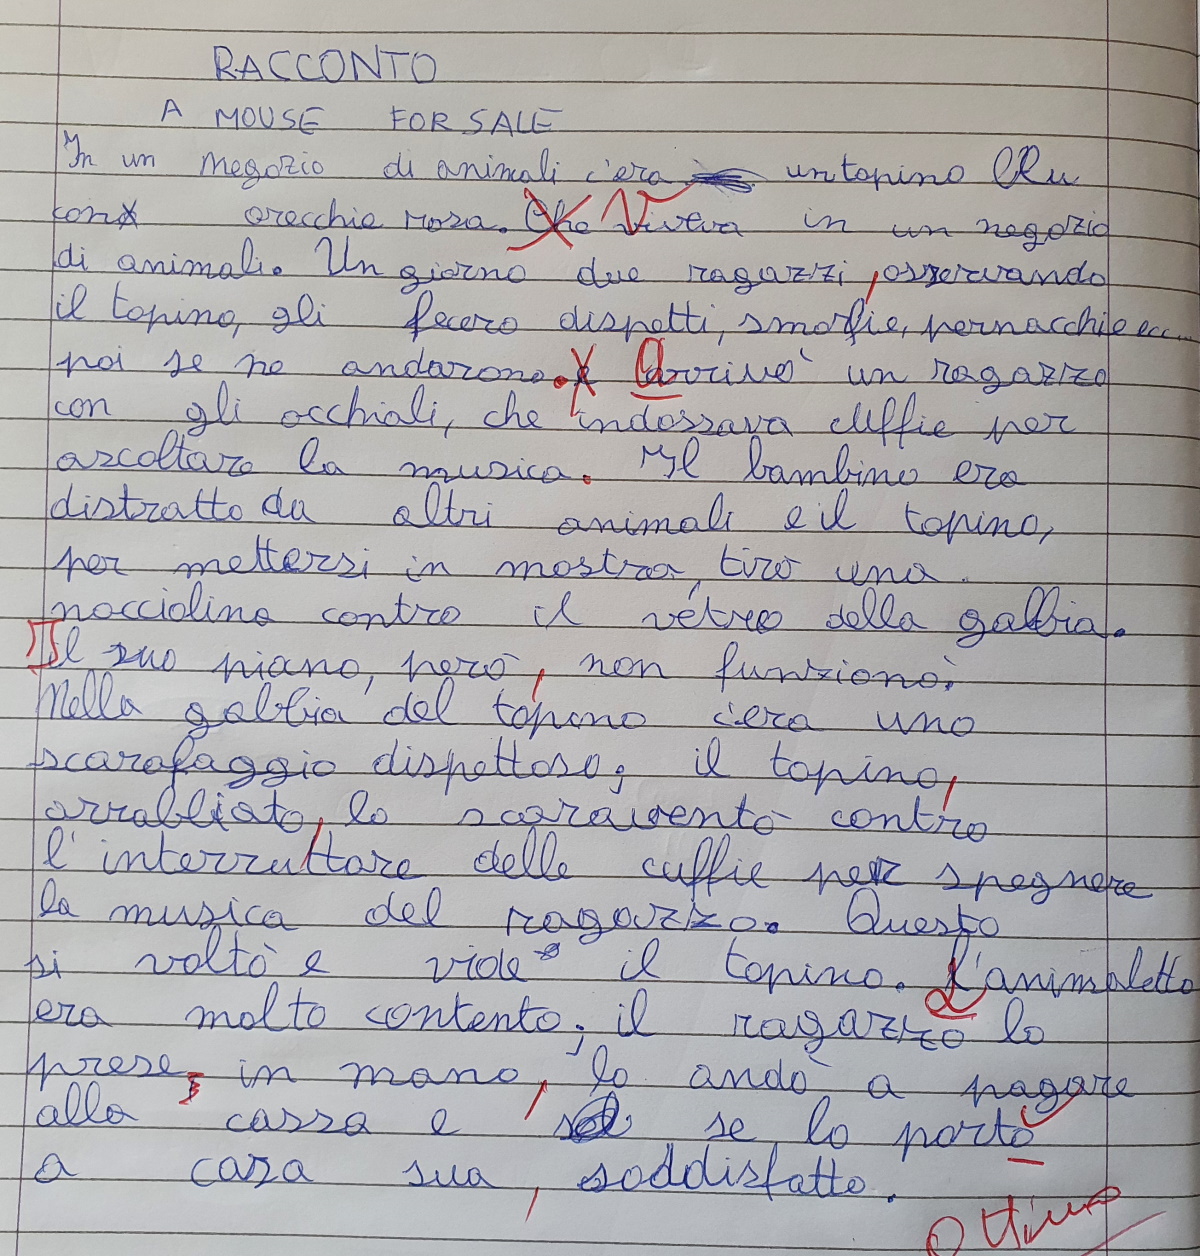 RACCONTO
A MOUSE FOR SALE
In un negozio di animali c'era un topino
con orecchie rosa. Viveva in un negozio
di animali. Un giorno due ragazzi, osservando
il topino, gli fecero dispetti, smorfie, pernacchie ecc...
poi se ne andarono. Arrivò un ragazzo
con gli occhiali, che indossava cuffie per
ascoltare la musica. Il bambino era
distratto da altri animali e il topino,
per mettersi in mostra, tirò una
nocciolina contro il vetreo della gabbia.
Il suo piano, però, non funzionò.
Nella gabbia del topino c'era uno
scarafaggio dispettoso; il topino,
arrabbiato, lo scaraventò contro
l'interruttore delle cuffie per spegnere
la musica del ragazzo. Questo
si voltò e vide il topino. L'animaletto
era molto contento; il ragazzo lo
prese, in mano, lo andò a pagare
alla cassa e se lo portò
a casa sua, soddisfatto.
Ottimo